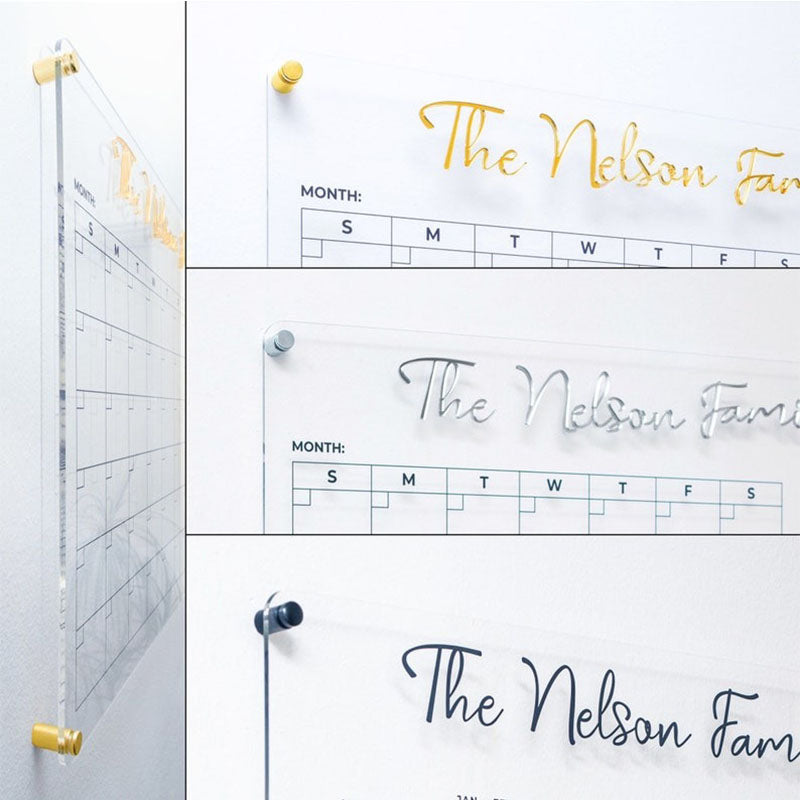 The Nelson
MONTH:
S M T W
The Nelson Fam
MONTH:
S M T W T F S
The Nelson Fami
MONTH:
S M T W T F S
The Nelson Fam
JAN